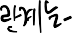 관계는